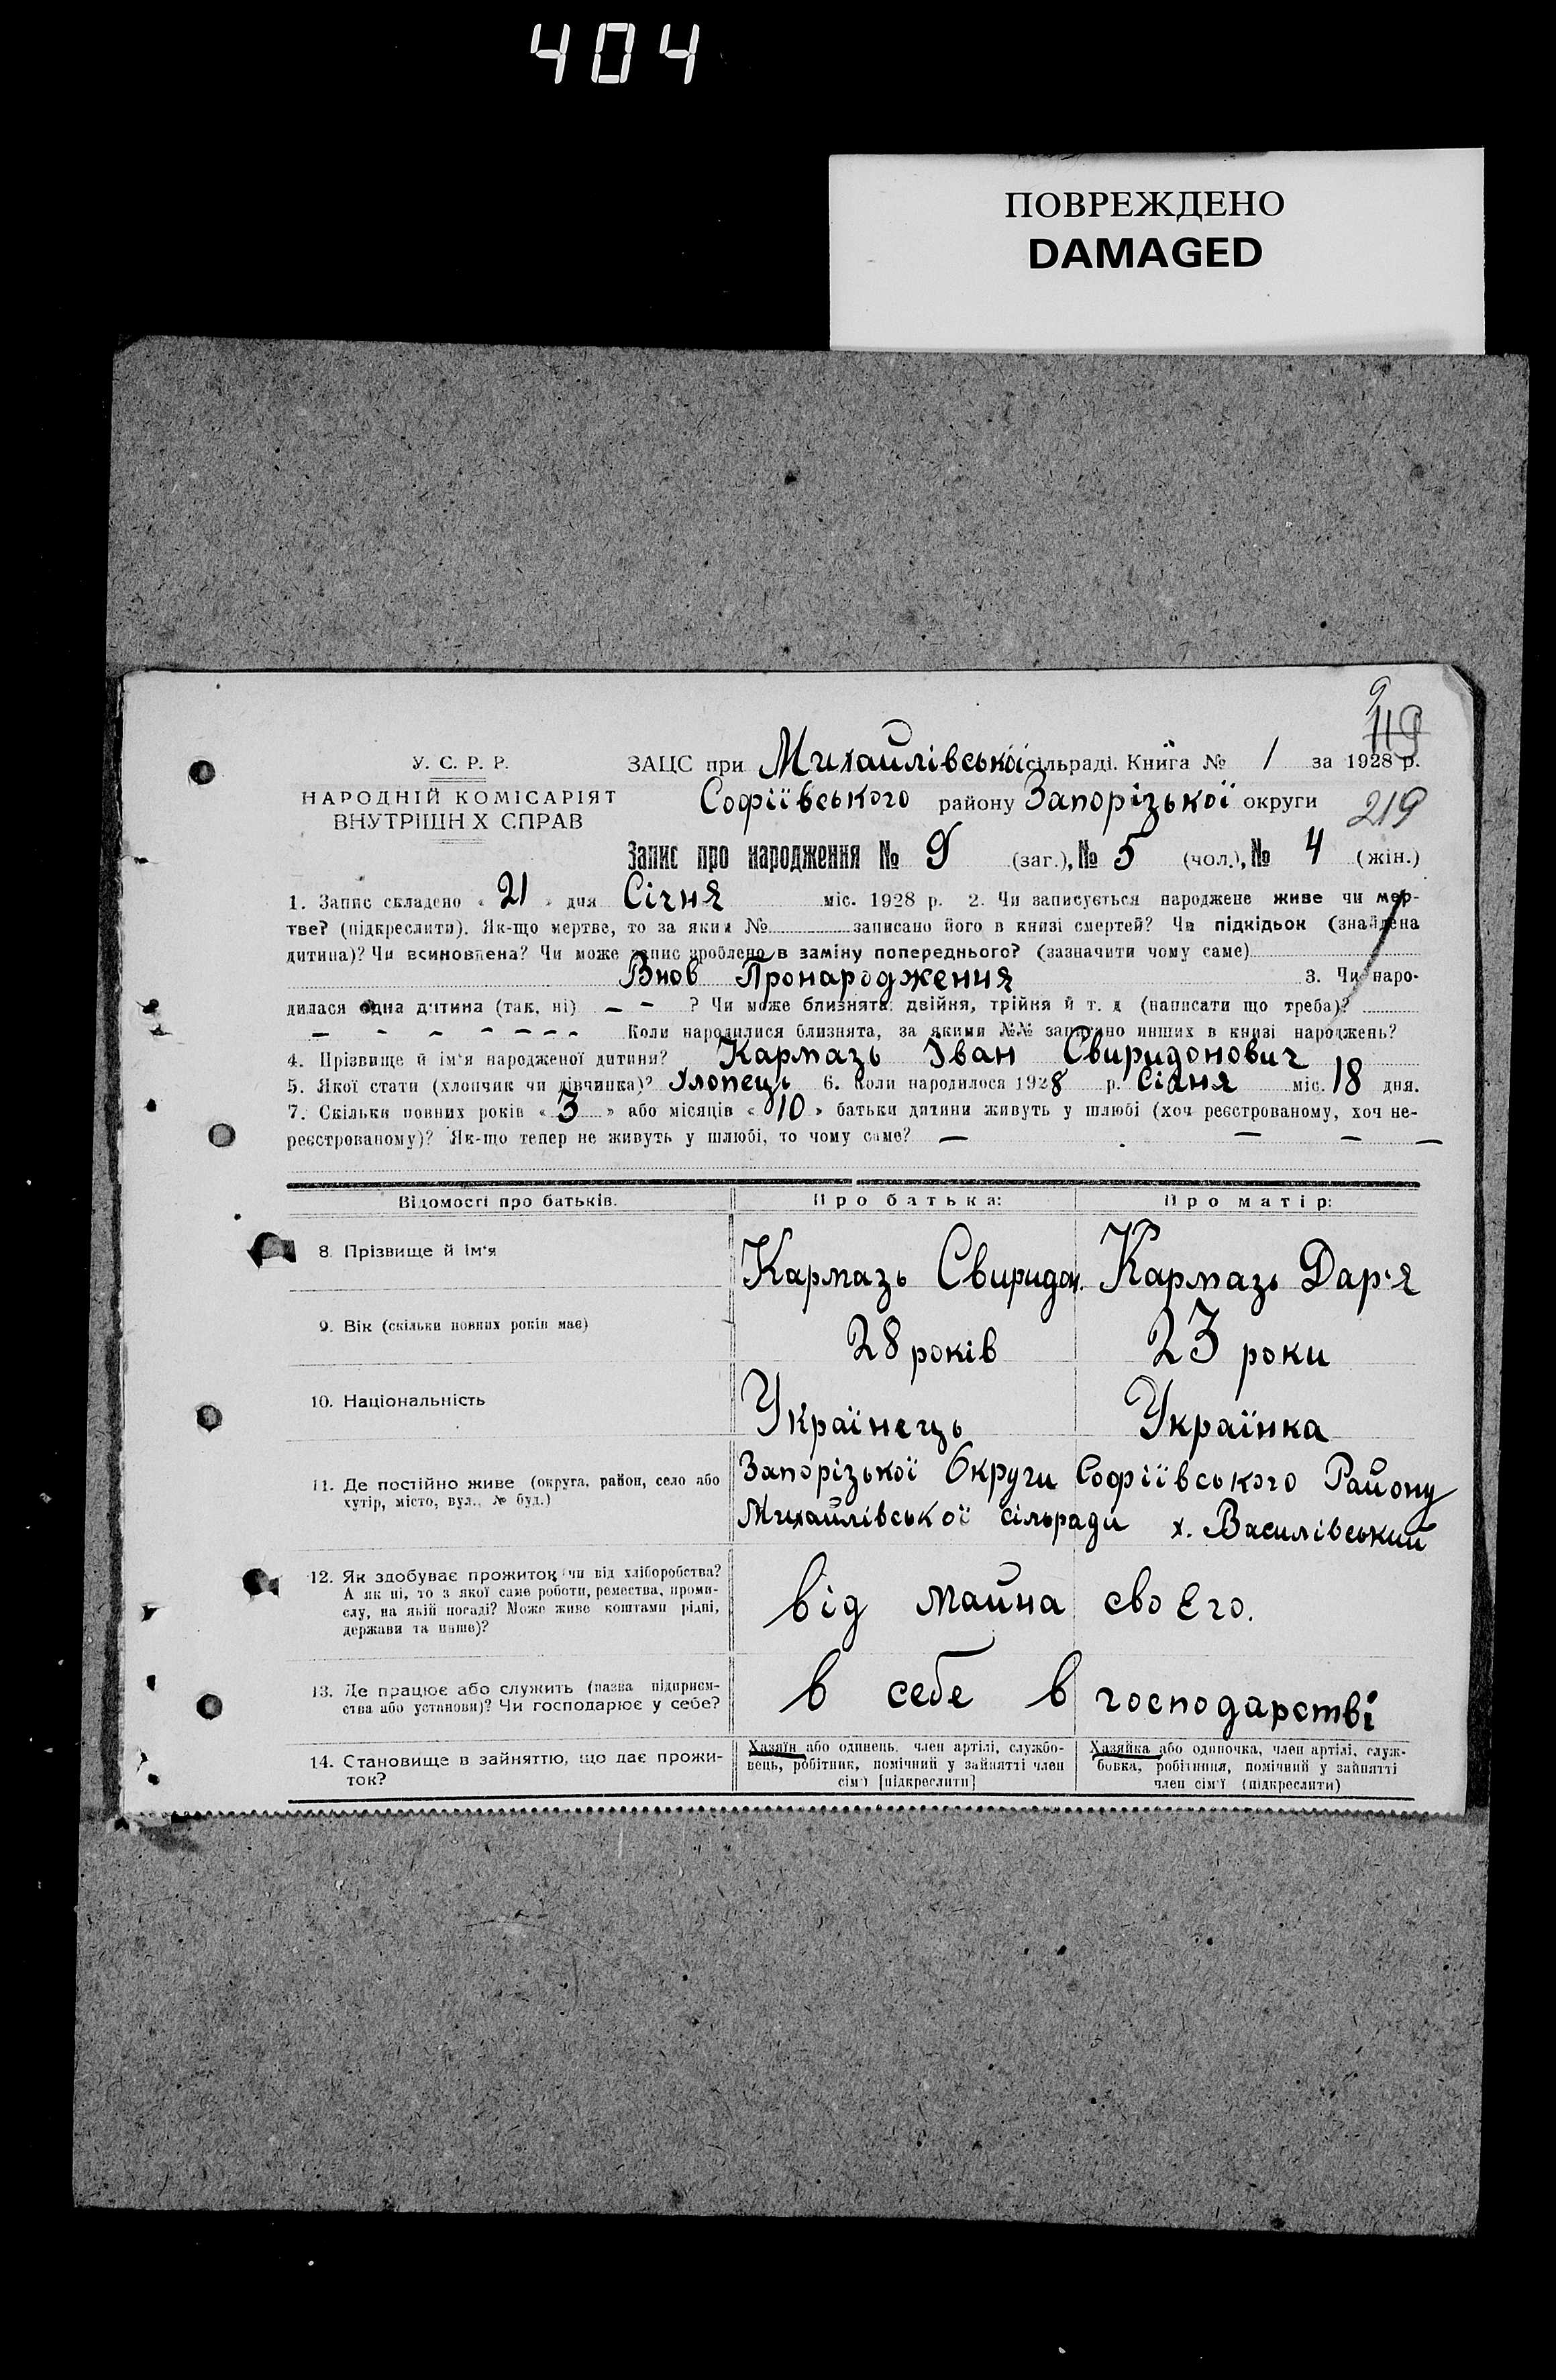 404
ПОВРЕЖДЕНО
DAMAGED
9
119
У. С. Р. Р.
НАРОДНІЙ КОМІСАРІЯТ
ВНУТРІШН Х СПРАВ
ЗАЦС при Михайлівської сільраді. Книга № 1 за 1928 р.
Софіївського району Запорізької округи
219
Запис про народження № 9 (заг.), № 5 (чол.), № 4 (жін.)
1. Запис складено « 21 » дня Січня міс. 1928 р. 2. Чи записується народжене живе чи мер-
тве? (підкреслити). Як-що мертве, то за яким № записано його в книзі смертей? Чи підкідьок (знайдена
дитина)? Чи всиновлена? Чи може запис зроблено в заміну попереднього? (зазначити чому саме)
Внов Пронародження 3. Чи наро-
дилася одна дитина (так, ні) — — ? Чи може близнята: двійня, трійня й т. д (написати що треба)?
— - - - - - - Коли народилися близнята, за якими №№ записано инших в книзі народжень?
4. Прізвище й ім'я народженої дитини? Кармазь Іван Свиридонович
5. Якої стати (хлопчик чи дівчинка)? хлопець 6. Коли народилося 1928 р. Січня міс. 18 дня.
7. Скільки повних років « 3 » або місяців « 10 » батьки дитини живуть у шлюбі (хоч реєстрованому, хоч не-
реєстрованому)? Як-що тепер не живуть у шлюбі, то чому саме? — — — —
Відомості про батьків. Про батька: Про матір:
8. Прізвище й ім'я Кармазь Свиридон. Кармазь Дар'я
9. Вік (скільки повних років має) 28 років 23 роки
10. Національність Українець Українка
11. Де постійно живе (округа, район, село або
хутір, місто, вул., № буд.)
Запорізької Округи Софіївського Району
Михайлівської сільради х. Василівський
12. Як здобуває прожиток чи від хліборобства?
А як ні, то з якої саме роботи, ремества, проми-
слу, на якій посаді? Може живе коштами рідні,
держави та инше)?
від майна своєго.
13. Де працює або служить (назва підприєм-
ства або установи)? Чи господарює у себе?
в себе в господарстві
14. Становище в зайняттю, що дає прожи-
ток?
Хазяїн або одинець, член артілі, службо-
вець, робітник, помічний у зайнятті член
сім'ї [підкреслити]
Хазяйка або одиночка, член артілі, служ-
бовка, робітниця, помічний у зайнятті
член сім'ї (підкреслити)